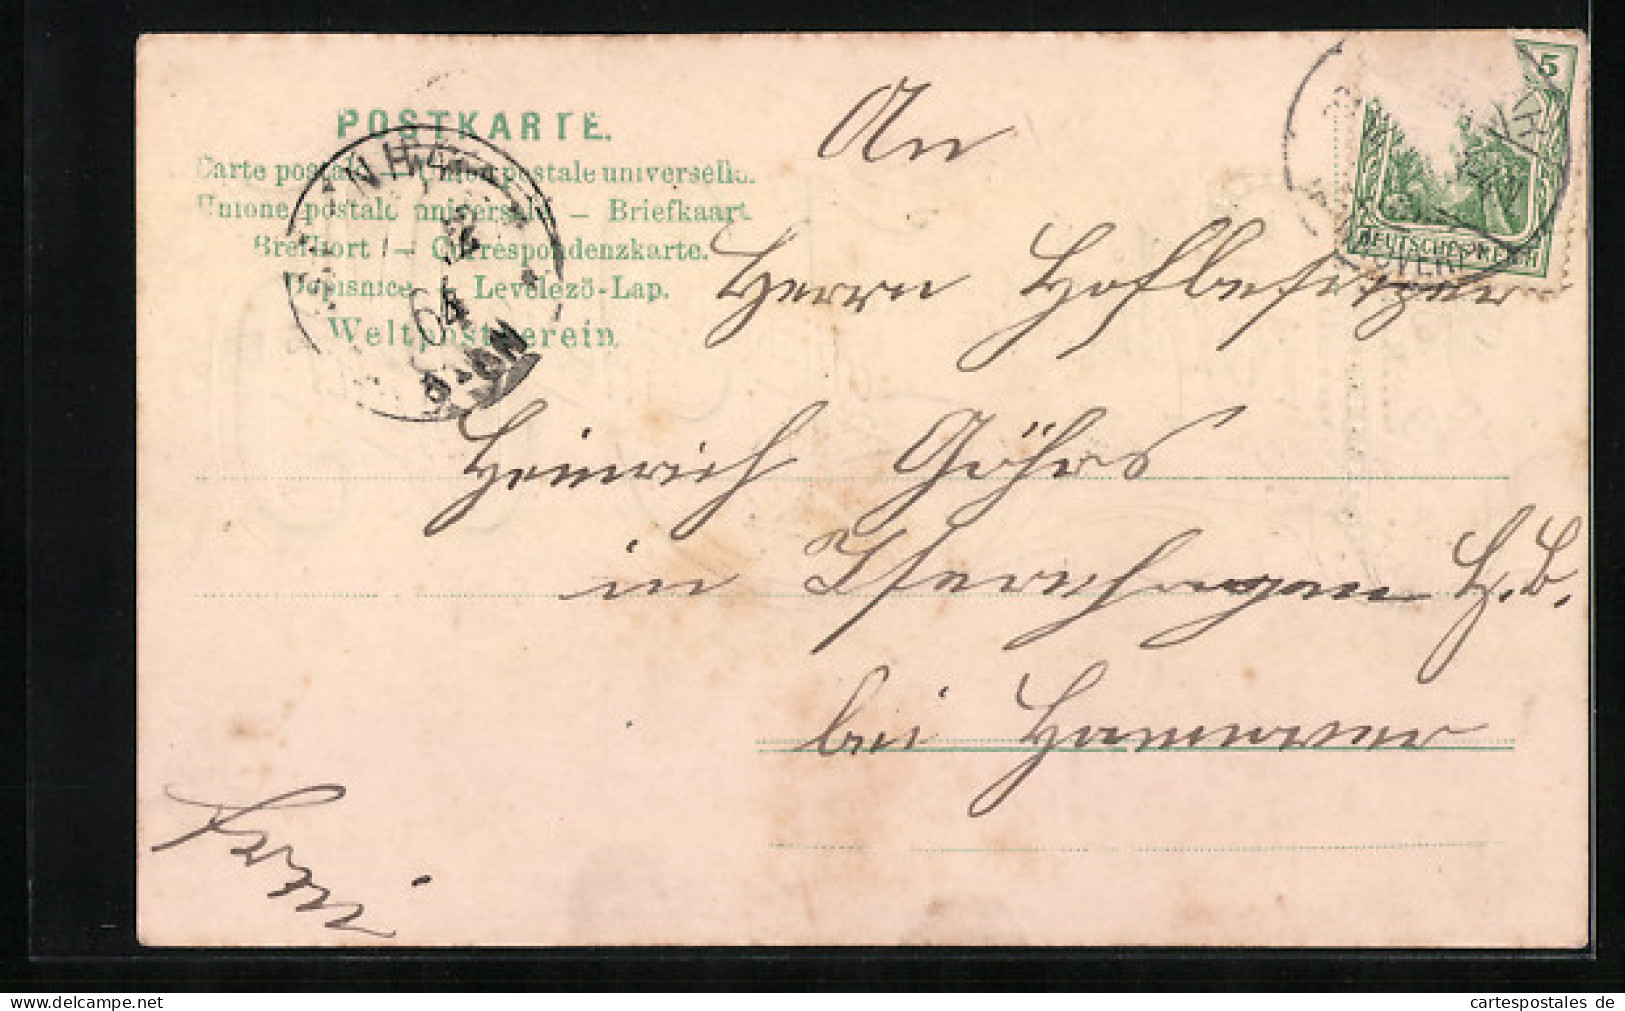 POSTKARTE.
Carte postale — Union postale universelle.
Unione postale universale — Briefkaart
Brefkort — Correspondenzkarte.
Dopisnice — Levelező-Lap.
Weltpostverein
04
5
DEUTSCHES REICH
An
Herrn Hofbesitzer
Heinrich Göhrs
in Isernhagen H. B.
bei Hannover
Frei
delcampe.net
cartespostales de